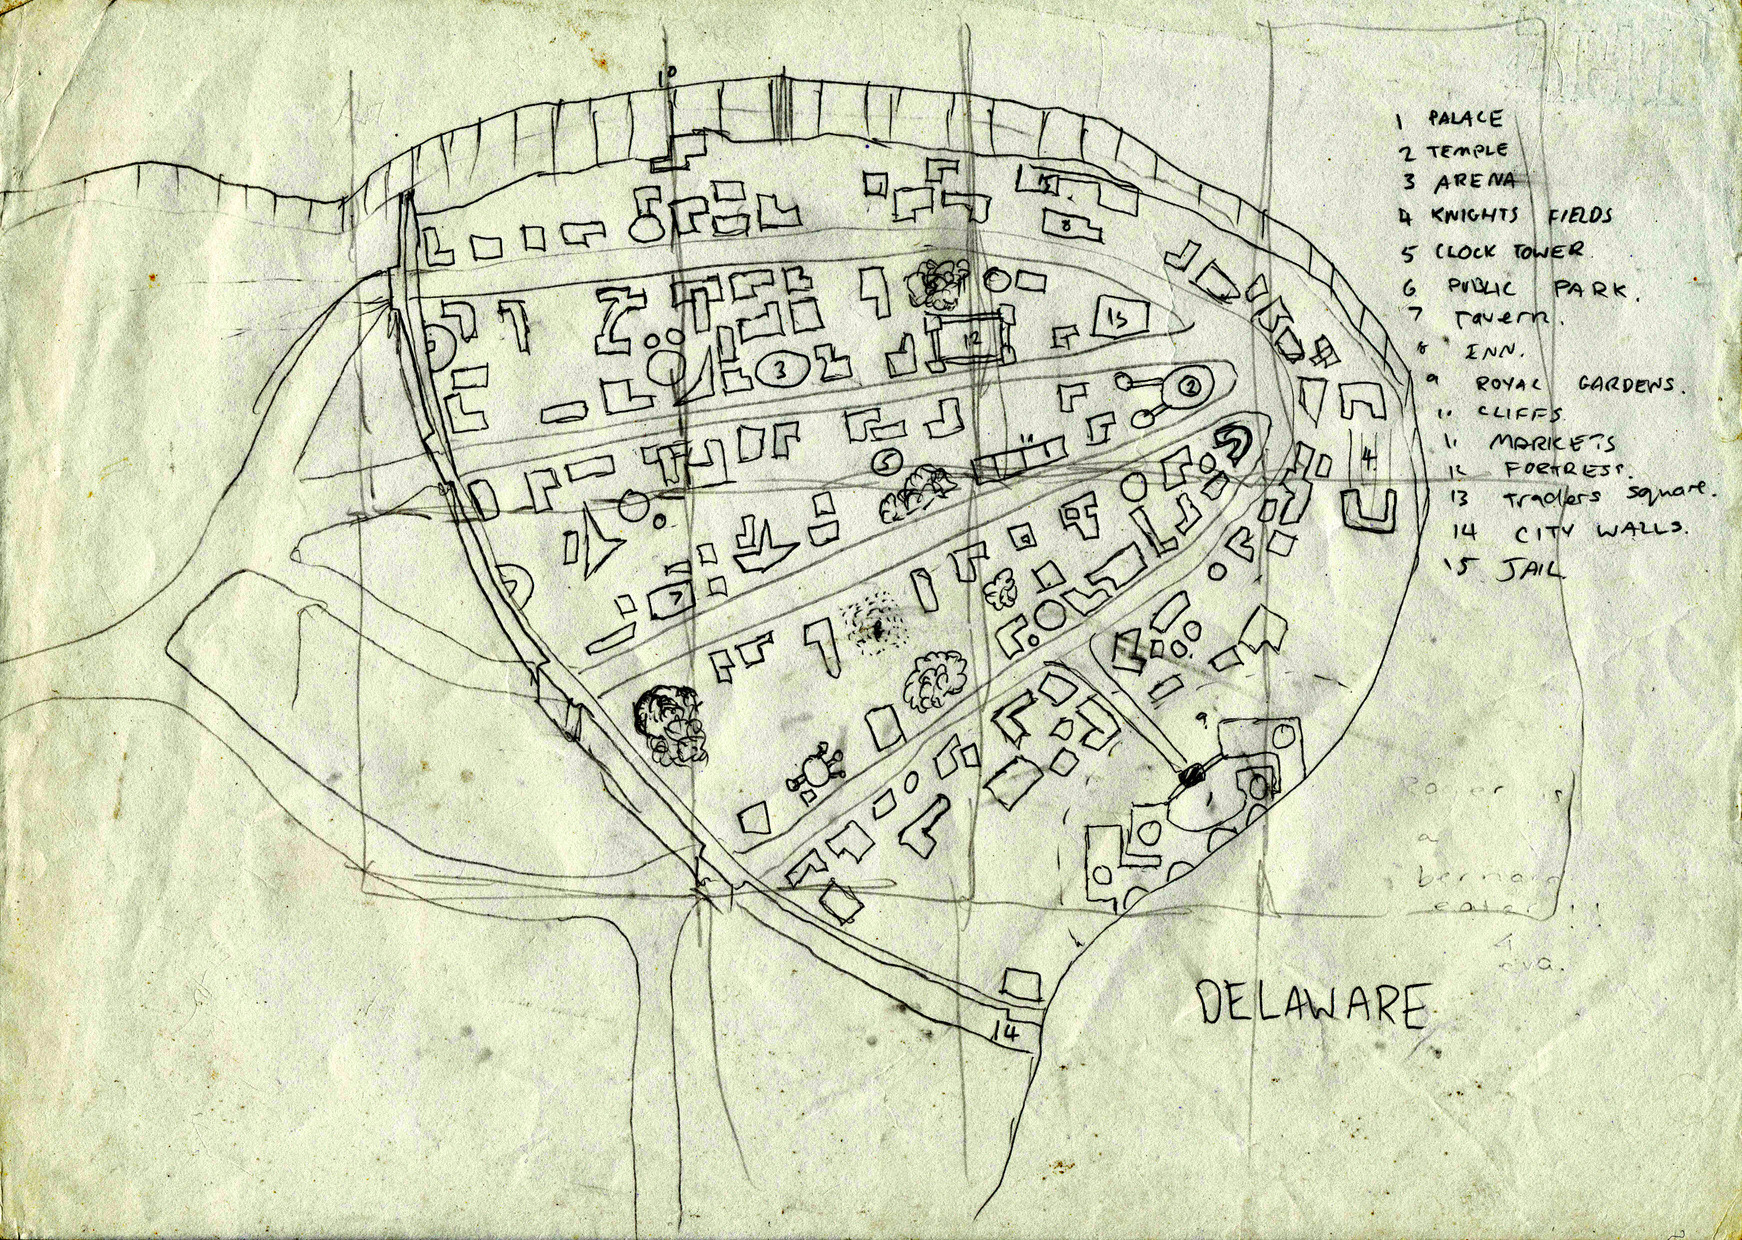 10
1 PALACE
2 TEMPLE
3 ARENA
4 KNIGHTS FIELDS
5 CLOCK TOWER.
6 PUBLIC PARK.
7 Tavern.
8 INN.
9 ROYAL GARDENS.
10 CLIFFS.
11 MARKETS
12 FORTRESS.
13 Traders Square.
14 CITY WALLS.
15 JAIL
15
8
13
12
3
2
11
5
4
7
9
1
a
14
DELAWARE